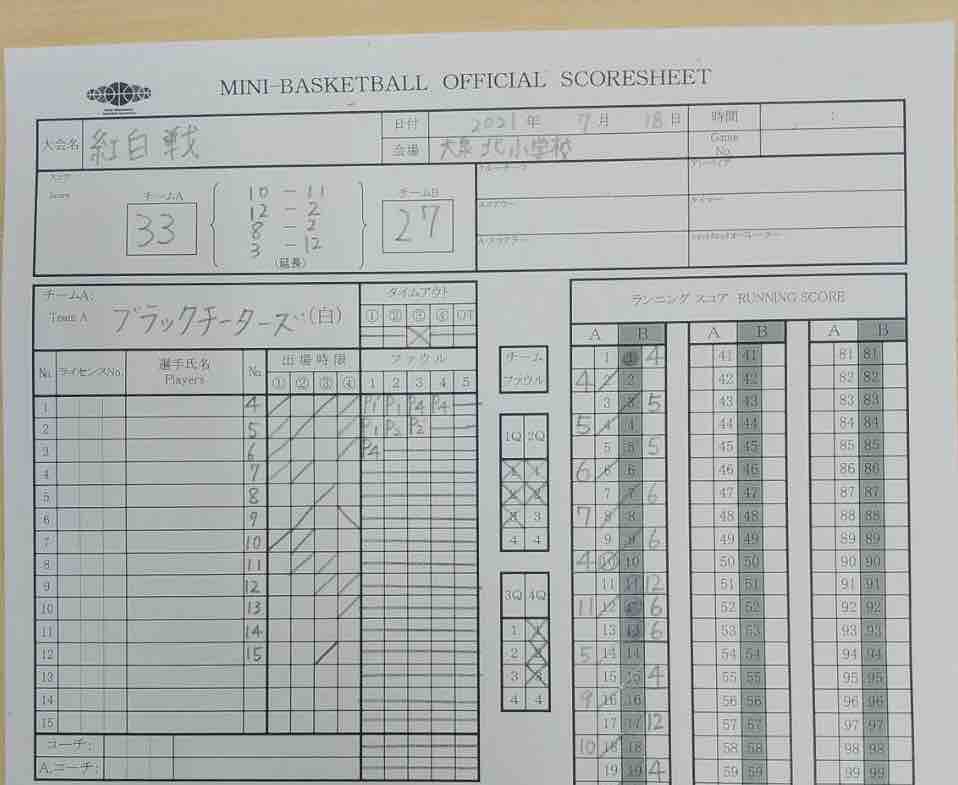 MINI-BASKETBALL OFFICIAL SCORESHEET
大会名 紅白戦 日付 2021年 7月 18日 時間 :
会場 大泉北小学校 Game No.
スコア Score チームA 33 チームB 27
10 - 11
12 - 2
8 - 2
3 - 12
(延長)
チームA:
Team A ブラックチーターズ(白)
タイムアウト
① ② ③ ④ OT
No. ライセンスNo. 選手氏名 Players No. 出場時限 ① ② ③ ④ ファウル 1 2 3 4 5
1 4 P1 P1 P4 P4
2 5 P1 P2 P2
3 6 P4
4 7
5 8
6 9
7 10
8 11
9 12
10 13
11 14
12 15
13
14
15
コーチ:
A.コーチ:
チーム
ファウル
1Q 2Q
1 1
2 2
3 3
4 4
3Q 4Q
1 1
2 2
3 3
4 4
ランニング スコア RUNNING SCORE
A B A B A B
1 1 4 41 41 81 81
4 2 2 42 42 82 82
3 3 5 43 43 83 83
5 4 4 44 44 84 84
5 5 5 45 45 85 85
6 6 6 46 46 86 86
7 7 6 47 47 87 87
7 8 8 48 48 88 88
9 9 6 49 49 89 89
4 10 10 50 50 90 90
11 11 12 51 51 91 91
11 12 12 6 52 52 92 92
13 13 6 53 53 93 93
5 14 14 54 54 94 94
15 15 4 55 55 95 95
9 16 16 56 56 96 96
17 17 12 57 57 97 97
10 18 18 58 58 98 98
19 19 4 59 59 99 99